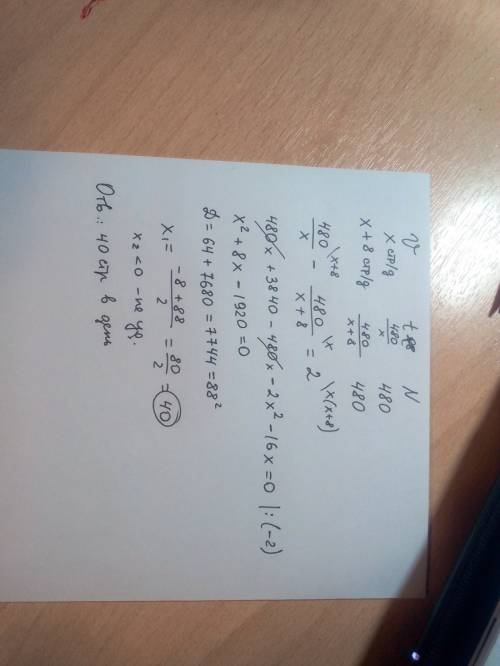 V t N
x стр/д 480/x 480
x + 8 стр/д 480/x+8 480
480/x \x+8 − 480/x+8 \x = 2 \x(x+8)
480x + 3840 − 480x − 2x² − 16x = 0 |:(−2)
x² + 8x − 1920 = 0
D = 64 + 7680 = 7744 = 88²
x₁ = −8 + 88/2 = 80/2 = 40
x₂ < 0 − не уд.
Отв.: 40 стр в день